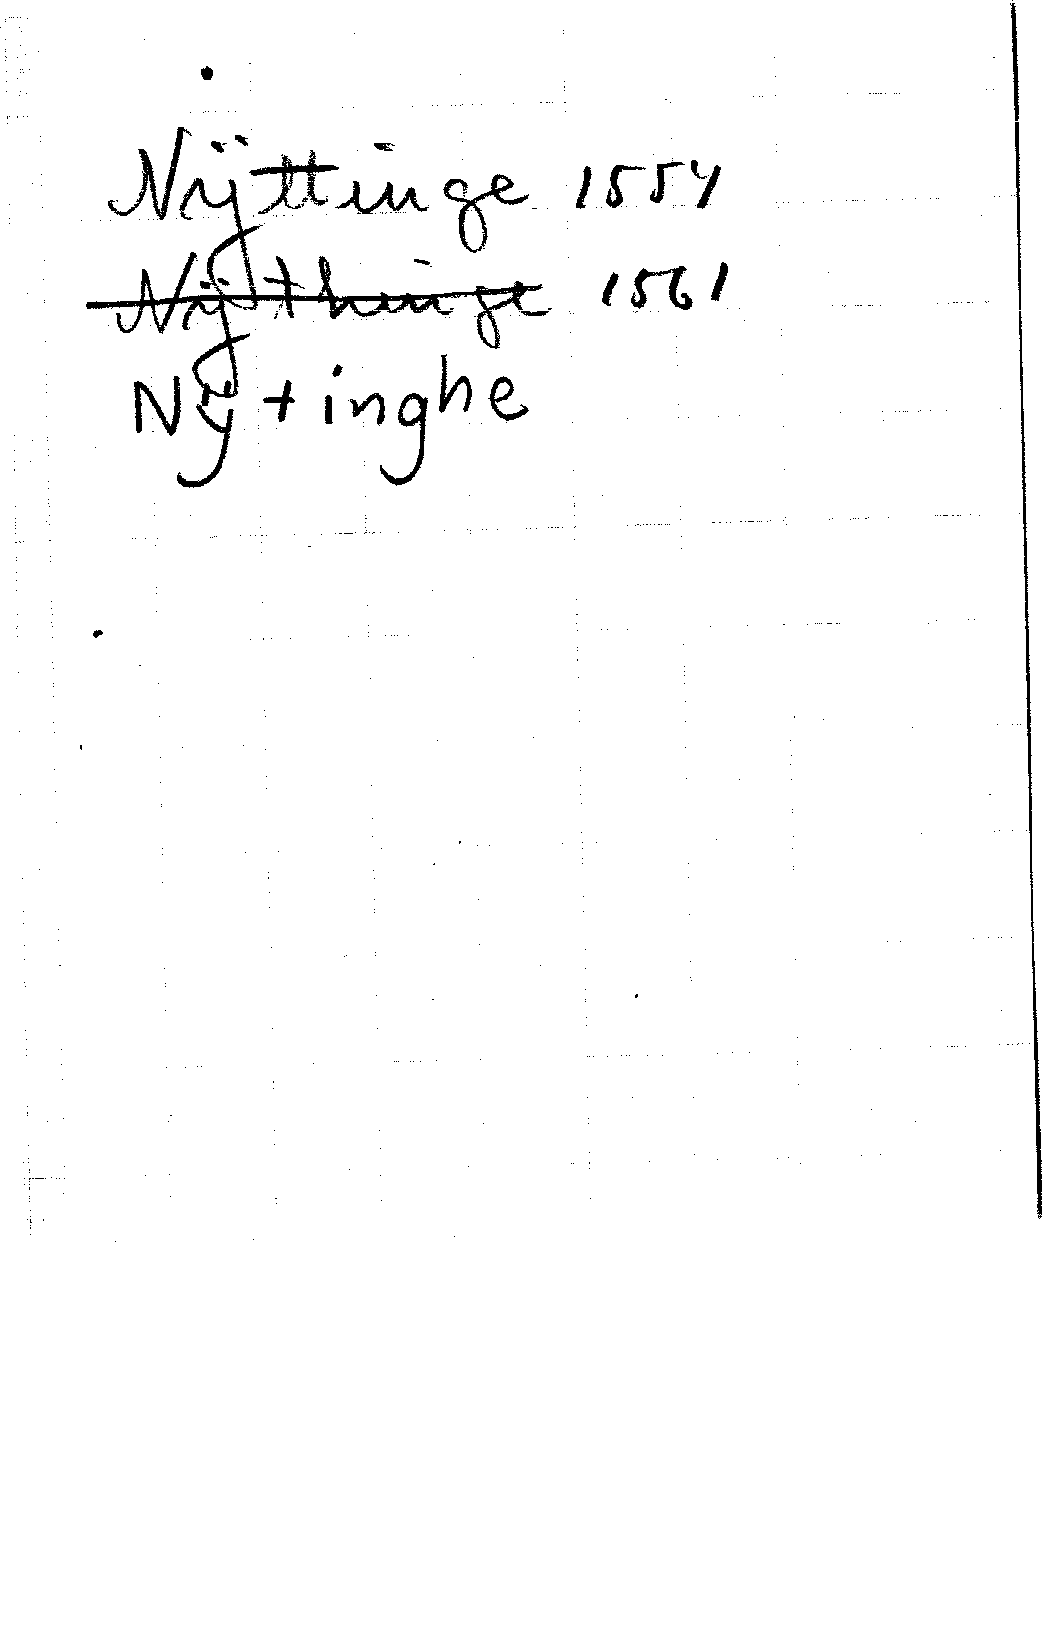 Nÿttinge 1554
Nÿthinge 1561
Nÿtinghe